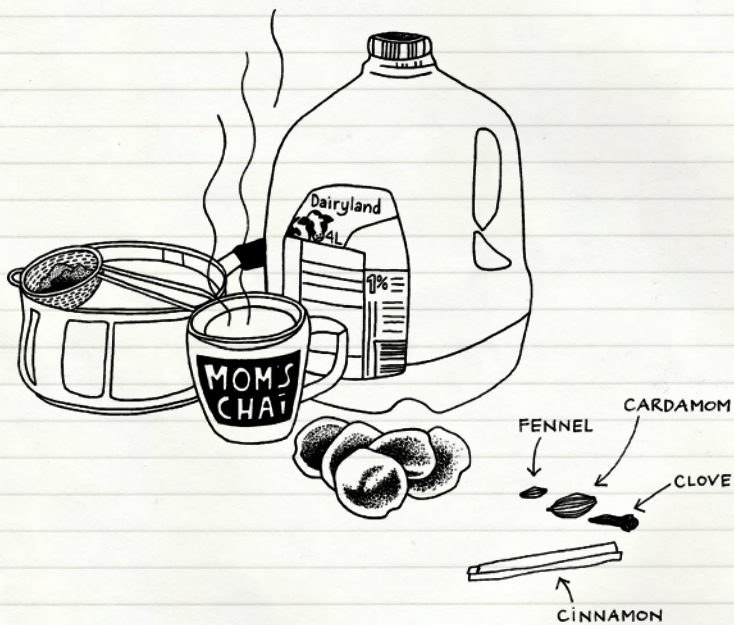 Dairyland
4L
1%
MOM'S
CHAI
FENNEL
CARDAMOM
CLOVE
CINNAMON